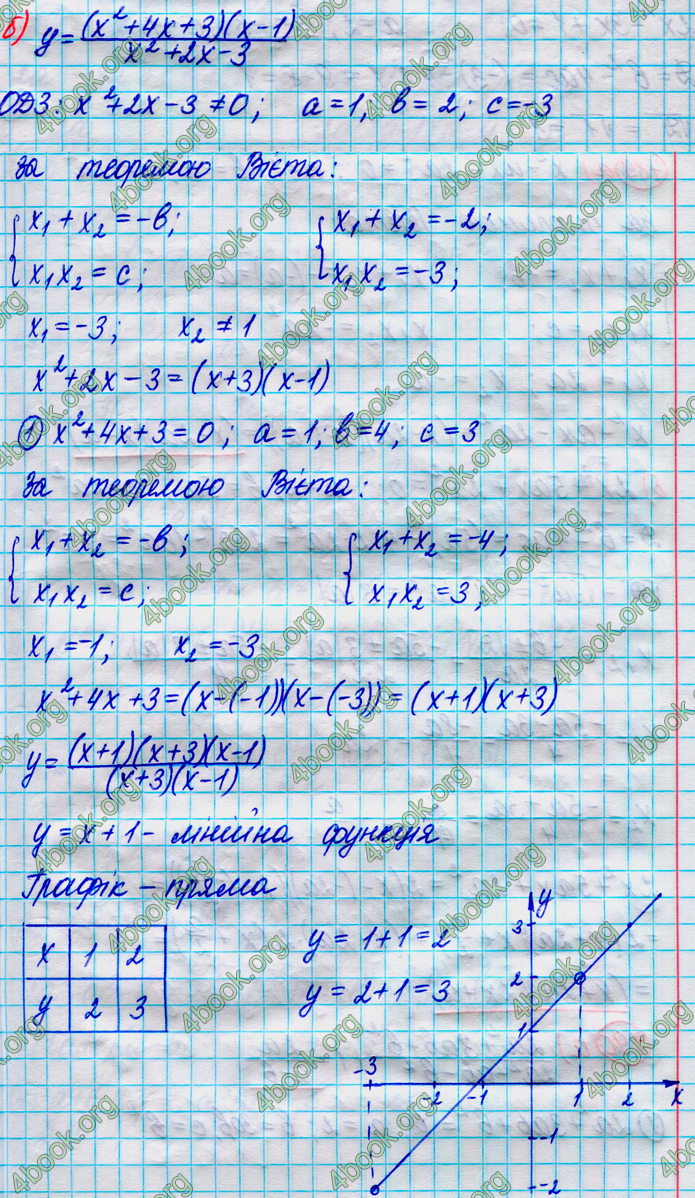 б) y = (x²+4x+3)(x-1) / x²+2x-3
ОДЗ: x²+2x-3≠0; a=1; b=2; c=-3
За теоремою Вієта:
{ x₁+x₂=-b; { x₁+x₂=-2;
x₁x₂=c; x₁x₂=-3;
x₁=-3; x₂≠1
x²+2x-3=(x+3)(x-1)
① x²+4x+3=0; a=1; b=4; c=3
За теоремою Вієта:
{ x₁+x₂=-b; { x₁+x₂=-4;
x₁x₂=c; x₁x₂=3;
x₁=-1; x₂=-3
x²+4x+3=(x-(-1))(x-(-3))=(x+1)(x+3)
y = (x+1)(x+3)(x-1) / (x+3)(x-1)
y=x+1 - лінійна функція
Графік - пряма
x 1 2
y 2 3
y=1+1=2
y=2+1=3
y
3
2
1
-3 -2 -1 1 2 x
-1
-2
4book.org